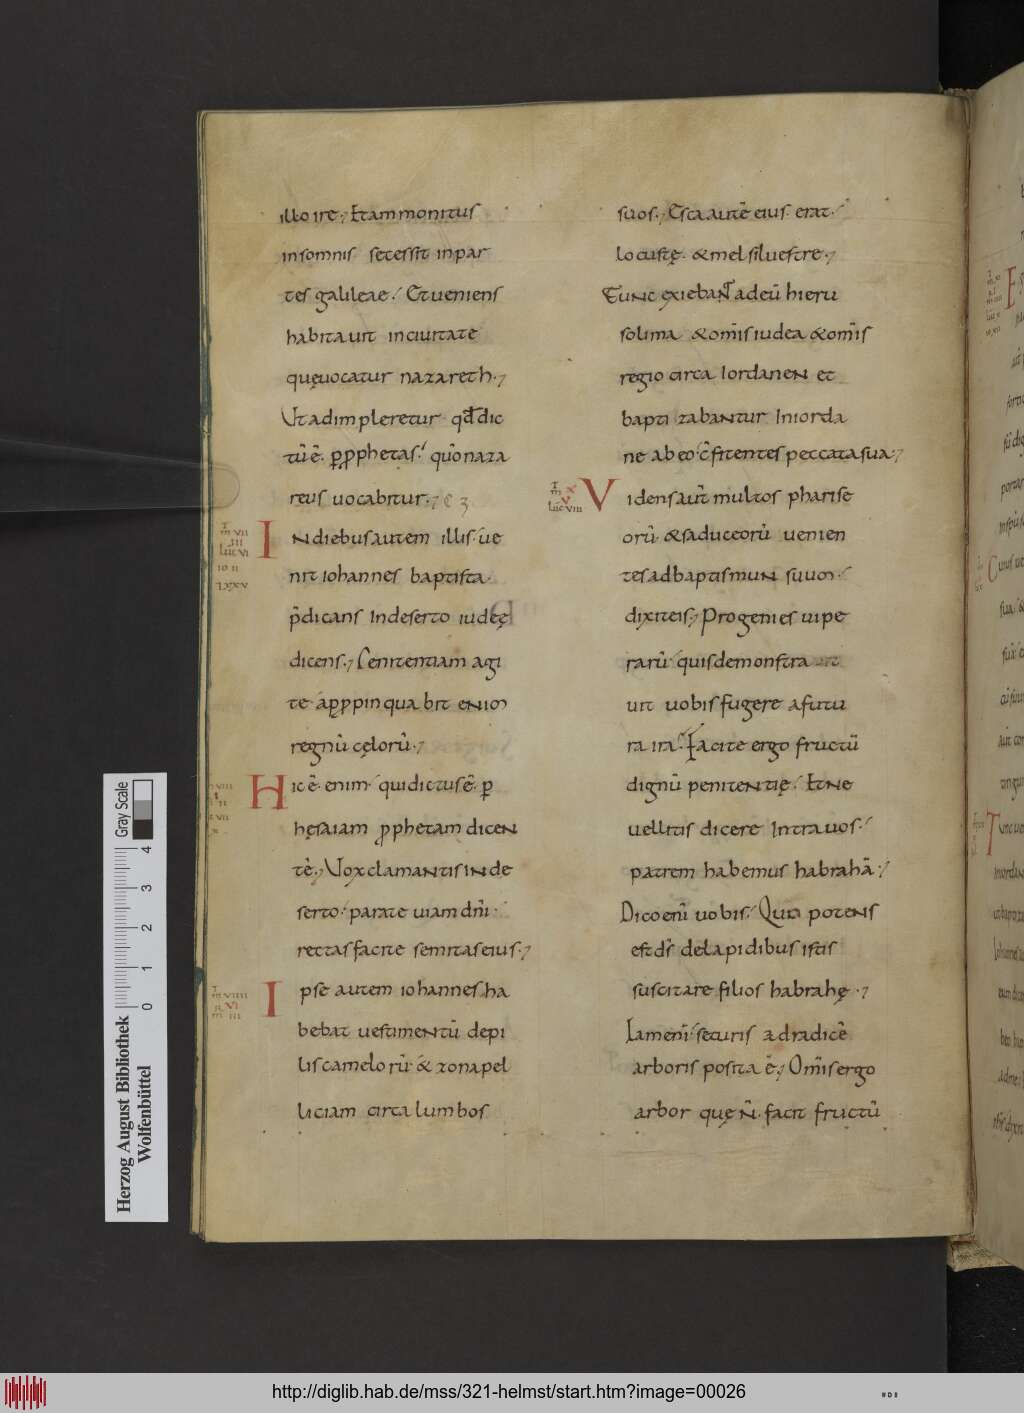 illo ire; Et ammonitus
in somnis secessit in par
tes galileae. Et ueniens
habitauit in ciuitate
quę uocatur nazareth;
Ut adimpleretur qd dic
tũ ẽ. p pphetas. qũo naza
reus uocabitur;
In diebus autem illis. ue
nit iohannes baptista
p̄dicans In deserto iudeę
dicens; Penitentiam agi
te áppinquabit enim
regnũ cęlorũ;
Hic ẽ. enim. qui dictus ẽ. p
hęsaiam pphetam dicen
tẽ; Vox clamantis in de
serto. parate uiam dñi
rectas facite semitas eius;
Ipse autem iohannes ha
bebat uestimentũ de pi
lis camelorũ. & zona pel
liciam circa lumbos
suos; Esca autẽ eius erat.
locustę. & mel siluestre;
Tunc exiebaNT ad eũ hieru
solima & om̃is iudea & om̃is
regio circa Iordanen et
baptizabantur In iorda
ne ab eo. c̃fitentes peccata sua;
Videns aut̃ multos pharise
orũ & saduceorũ uenien
tes ad baptismum suum.
dixit eis; Progenies uipe
rarũ quis demonstra
uit uobis fugere a futu
ra ira. Facite ergo fructũ
dignũ penitentię. Et ne
uellitis dicere Intra uos.
patrem habemus habrahã;
Dico enĩ uobis. Quia potens
est ds̃ de lapidibus istis
suscitare filios habrahę;
Iam enĩ securis ad radicẽ
arboris posita ẽ; Om̃is ergo
arbor quę ñ. facit fructũ
Herzog August Bibliothek
Wolfenbüttel
Gray Scale
0 1 2 3 4
http://diglib.hab.de/mss/321-helmst/start.htm?image=00026